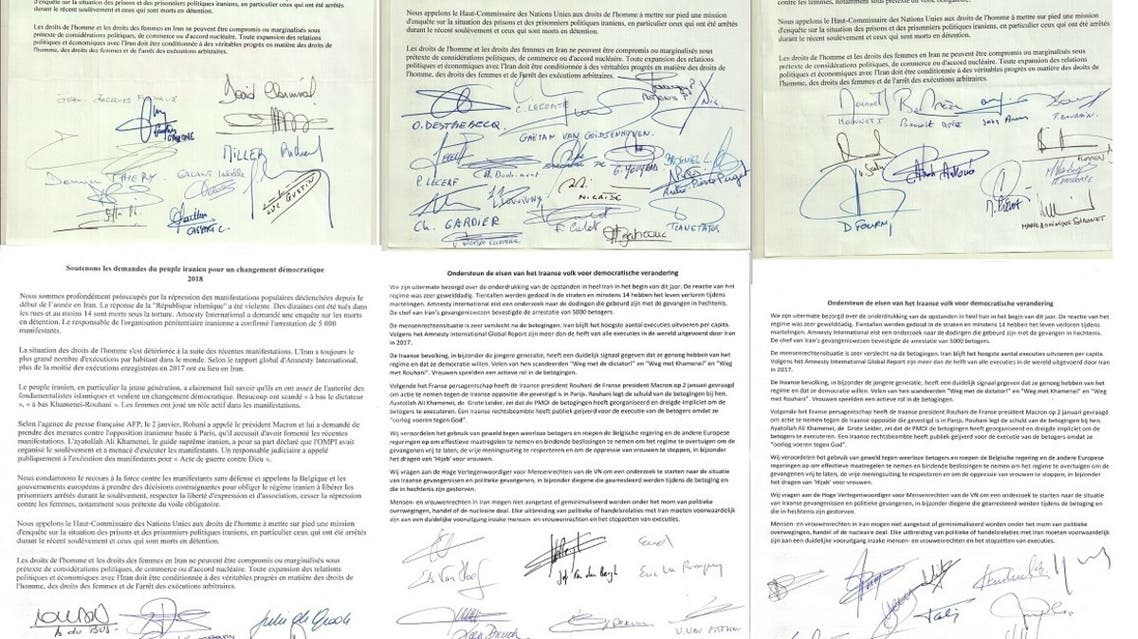 d'enquête sur la situation des prisons et des prisonniers politiques iraniens, en particulier ceux qui ont été arrêtés
durant le récent soulèvement et ceux qui sont morts en détention.
Les droits de l'homme et les droits des femmes en Iran ne peuvent être compromis ou marginalisés sous
prétexte de considérations politiques, de commerce ou d'accord nucléaire. Toute expansion des relations
politiques et économiques avec l'Iran doit être conditionnée à des véritables progrès en matière des droits de
l'homme, des droits des femmes et de l'arrêt des exécutions arbitraires.
JEAN-JACQUES
David Clarinval
MILLER Richard
THIERY
LUC GUSTIN
Nous appelons le Haut-Commissaire des Nations Unies aux droits de l'homme à mettre sur pied une mission
d'enquête sur la situation des prisons et des prisonniers politiques iraniens, en particulier ceux qui ont été arrêtés
durant le récent soulèvement et ceux qui sont morts en détention.
Les droits de l'homme et les droits des femmes en Iran ne peuvent être compromis ou marginalisés sous
prétexte de considérations politiques, de commerce ou d'accord nucléaire. Toute expansion des relations
politiques et économiques avec l'Iran doit être conditionnée à des véritables progrès en matière des droits de
l'homme, des droits des femmes et de l'arrêt des exécutions arbitraires.
C. LECOMTE
O. DESTREBECQ
GAËTAN VAN GOIDSENHOVEN.
P. LECERF
NICAISE
Ch. GARDIER
F. Culot
contre les femmes, notamment sous prétexte du voile obligatoire.
Nous appelons le Haut-Commissaire des Nations Unies aux droits de l'homme à mettre sur pied une mission
d'enquête sur la situation des prisons et des prisonniers politiques iraniens, en particulier ceux qui ont été arrêtés
durant le récent soulèvement et ceux qui sont morts en détention.
Les droits de l'homme et les droits des femmes en Iran ne peuvent être compromis ou marginalisés sous
prétexte de considérations politiques, de commerce ou d'accord nucléaire. Toute expansion des relations
politiques et économiques avec l'Iran doit être conditionnée à des véritables progrès en matière des droits de
l'homme, des droits des femmes et de l'arrêt des exécutions arbitraires.
D FOURNY
Soutenons les demandes du peuple iranien pour un changement démocratique
2018
Nous sommes profondément préoccupés par la répression des manifestations populaires déclenchées depuis le
début de l'année en Iran. La réponse de la "République islamique" a été violente. Des dizaines ont été tués dans
les rues et au moins 14 sont morts sous la torture. Amnesty International a demandé une enquête sur les morts
en détention. Le responsable de l'organisation pénitentiaire iranienne a confirmé l'arrestation de 5 000
manifestants.
La situation des droits de l'homme s'est détériorée à la suite des récentes manifestations. L'Iran a toujours le
plus grand nombre d'exécutions par habitant dans le monde. Selon le rapport global d'Amnesty International,
plus de la moitié des exécutions enregistrées en 2017 ont eu lieu en Iran.
Le peuple iranien, en particulier la jeune génération, a clairement fait savoir qu'ils en ont assez de l'autorité des
fondamentalistes islamiques et veulent un changement démocratique. Beaucoup ont scandé « à bas le dictateur
», « à bas Khamenei-Rouhani ». Les femmes ont joué un rôle actif dans les manifestations.
Selon l'agence de presse française AFP, le 2 janvier, Rohani a appelé le président Macron et lui a demandé de
prendre des mesures contre l'opposition iranienne basée à Paris, qu'il accusait d'avoir fomenté les récentes
manifestations. L'ayatollah Ali Khamenei, le guide suprême iranien, a pour sa part déclaré que l'OMPI avait
organisé le soulèvement et a menacé d'exécuter les manifestants. Un responsable judiciaire a appelé
publiquement à l'exécution des manifestants pour « Acte de guerre contre Dieu ».
Nous condamnons le recours à la force contre les manifestants sans défense et appelons la Belgique et les
gouvernements européens à prendre des décisions contraignantes pour obliger le régime iranien à libérer les
prisonniers arrêtés durant le soulèvement, respecter la liberté d'expression et d'association, cesser la répression
contre les femmes, notamment sous prétexte du voile obligatoire.
Nous appelons le Haut-Commissaire des Nations Unies aux droits de l'homme à mettre sur pied une mission
d'enquête sur la situation des prisons et des prisonniers politiques iraniens, en particulier ceux qui ont été arrêtés
durant le récent soulèvement et ceux qui sont morts en détention.
Les droits de l'homme et les droits des femmes en Iran ne peuvent être compromis ou marginalisés sous
prétexte de considérations politiques, de commerce ou d'accord nucléaire. Toute expansion des relations
politiques et économiques avec l'Iran doit être conditionnée à des véritables progrès en matière des droits de
l'homme, des droits des femmes et de l'arrêt des exécutions arbitraires.
Ondersteun de eisen van het Iraanse volk voor democratische verandering
We zijn uitermate bezorgd over de onderdrukking van de opstanden in heel Iran in het begin van dit jaar. De reactie van het
regime was zeer gewelddadig. Tientallen werden gedood in de straten en minstens 14 hebben het leven verloren tijdens
martelingen. Amnesty International eist een onderzoek naar de dodingen die gebeurd zijn met de gevangen in hechtenis.
De chef van Iran's gevangeniswezen bevestigde de arrestatie van 5000 betogers.
De mensenrechtensituatie is zeer verslecht na de betogingen. Iran blijft het hoogste aantal executies uitvoeren per capita.
Volgens het Amnesty International Global Report zijn meer dan de helft van alle executies in de wereld uitgevoerd door Iran
in 2017.
De Iraanse bevolking, in bijzonder de jongere generatie, heeft een duidelijk signaal gegeven dat ze genoeg hebben van het
regime en dat ze democratie willen. Velen van hen scandeerden "Weg met de dictator!" en "Weg met Khamenei" en "Weg
met Rouhani". Vrouwen speelden een actieve rol in de betogingen.
Volgende het Franse persagentschap heeft de Iraanse president Rouhani de Franse president Macron op 2 januari gevraagd
om actie te nemen tegen de Iraanse oppositie die gevestigd is in Parijs. Rouhani legt de schuld van de betogingen bij hen.
Ayatollah Ali Khamenei, de Grote Leider, zei dat de PMOI de betogingen heeft georganiseerd en dreigde impliciet om de
betogers te executeren. Een Iraanse rechtsbeambte heeft publiek geijverd voor de executies van de betogers omdat ze
"oorlog voeren tegen God".
Wij veroordelen het gebruik van geweld tegen weerloze betogers en roepen de Belgische regering en de andere Europese
regeringen op om effectieve maatregelen te nemen en bindende beslissingen te nemen om het regime te overtuigen om de
gevangenen vrij te laten, de vrije meningsuiting te respecteren en om de oppressie van vrouwen te stoppen, in het bijzonder
het dragen van 'Hijab' voor vrouwen.
Wij vragen aan de Hoge Vertegenwoordiger voor Mensenrechten van de VN om een onderzoek te starten naar de situatie
van Iraanse gevangenissen en politieke gevangenen, in bijzonder diegene die gearresteerd werden tijdens de betoging en
die in hechtenis zijn gestorven.
Mensen- en vrouwenrechten in Iran mogen niet aangetast of geminimaliseerd worden onder het mom van politieke
overwegingen, handel of de nucleaire deal. Elke uitbreiding van politieke of handelsrelaties met Iran moeten voorwaardelijk
zijn aan een duidelijke vooruitgang inzake mensen- en vrouwenrechten en het stopzetten van executies.
Jef Van den Bergh
Ondersteun de eisen van het Iraanse volk voor democratische verandering
We zijn uitermate bezorgd over de onderdrukking van de opstanden in heel Iran in het begin van dit jaar. De reactie van het
regime was zeer gewelddadig. Tientallen werden gedood in de straten en minstens 14 hebben het leven verloren tijdens
martelingen. Amnesty International eist een onderzoek naar de dodingen die gebeurd zijn met de gevangen in hechtenis.
De chef van Iran's gevangeniswezen bevestigde de arrestatie van 5000 betogers.
De mensenrechtensituatie is zeer verslecht na de betogingen. Iran blijft het hoogste aantal executies uitvoeren per capita.
Volgens het Amnesty International Global Report zijn meer dan de helft van alle executies in de wereld uitgevoerd door Iran
in 2017.
De Iraanse bevolking, in bijzonder de jongere generatie, heeft een duidelijk signaal gegeven dat ze genoeg hebben van het
regime en dat ze democratie willen. Velen van hen scandeerden "Weg met de dictator!" en "Weg met Khamenei" en "Weg
met Rouhani". Vrouwen speelden een actieve rol in de betogingen.
Volgende het Franse persagentschap heeft de Iraanse president Rouhani de Franse president Macron op 2 januari gevraagd
om actie te nemen tegen de Iraanse oppositie die gevestigd is in Parijs. Rouhani legt de schuld van de betogingen bij hen.
Ayatollah Ali Khamenei, de Grote Leider, zei dat de PMOI de betogingen heeft georganiseerd en dreigde impliciet om de
betogers te executeren. Een Iraanse rechtsbeambte heeft publiek geijverd voor de executies van de betogers omdat ze
"oorlog voeren tegen God".
Wij veroordelen het gebruik van geweld tegen weerloze betogers en roepen de Belgische regering en de andere Europese
regeringen op om effectieve maatregelen te nemen en bindende beslissingen te nemen om het regime te overtuigen om de
gevangenen vrij te laten, de vrije meningsuiting te respecteren en om de oppressie van vrouwen te stoppen, in het bijzonder
het dragen van 'Hijab' voor vrouwen.
Wij vragen aan de Hoge Vertegenwoordiger voor Mensenrechten van de VN om een onderzoek te starten naar de situatie
van Iraanse gevangenissen en politieke gevangenen, in bijzonder diegene die gearresteerd werden tijdens de betoging en
die in hechtenis zijn gestorven.
Mensen- en vrouwenrechten in Iran mogen niet aangetast of geminimaliseerd worden onder het mom van politieke
overwegingen, handel of de nucleaire deal. Elke uitbreiding van politieke of handelsrelaties met Iran moeten voorwaardelijk
zijn aan een duidelijke vooruitgang inzake mensen- en vrouwenrechten en het stopzetten van executies.